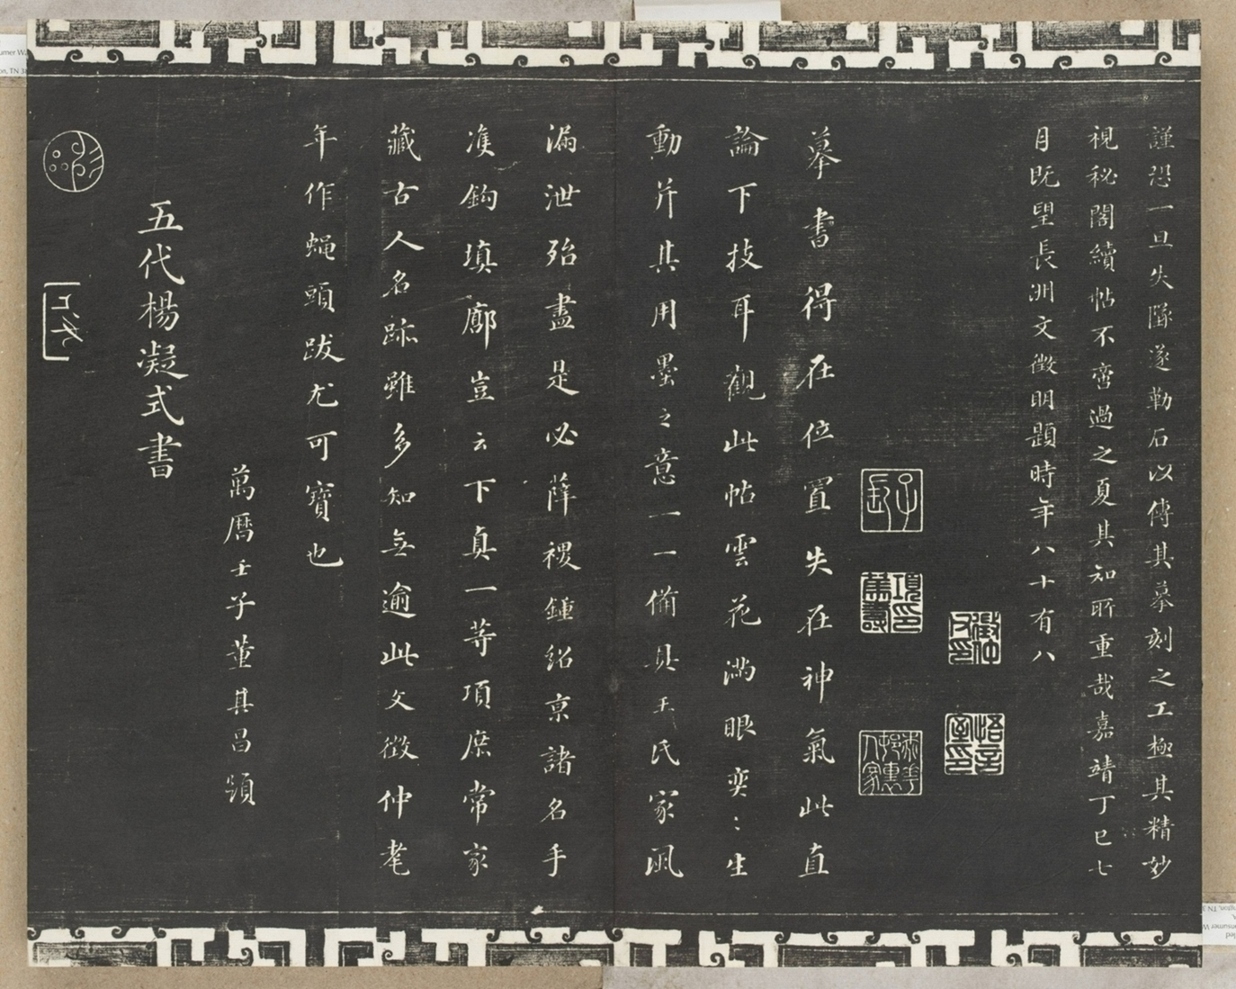 謹恐一旦失墜遂勒石以傳其摹刻之工極其精妙
視秘閣續帖不啻過之夏其知所重哉嘉靖丁巳七
月既望長洲文徵明題時年八十有八
徵仲父印
悟言室印
子長
項篤壽印
摹書得在位置失在神氣此直
論下技耳觀此帖雲花滿眼奕:生
動并其用墨之意一一備具王氏家風
漏泄殆盡是必薛稷鍾紹京諸名手
准鉤填廓豈云下真一等項庶常家
藏古人名跡雖多知無逾此文徵仲耄
年作蠅頭跋尤可寶也
萬曆壬子董其昌題
五代楊凝式書